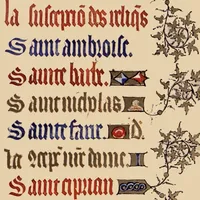 la suscepcõ des reliq̃s
Saint ambroise.
Sainte barbe.
Saint nicholas
Sainte fare. d.
la ꝯcepc̃ nr̃e dame.
Saint ciprian